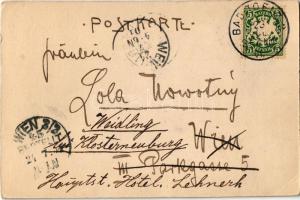 POSTKARTE.
BA
WIEN
Fräulein
Lola Nowotny
Weidling
Klosterneuburg
Wien
III Parkgasse 5
Hauptst. Hotel
WIEN